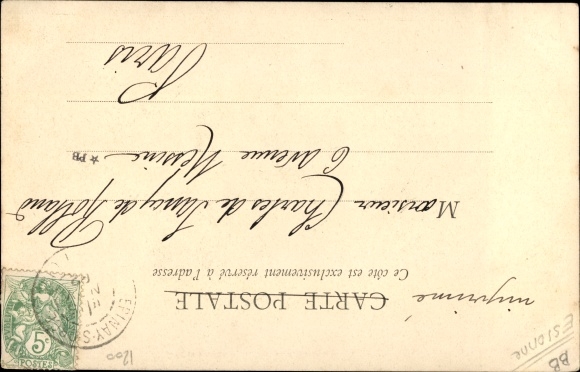 CARTE POSTALE
Ce côté est exclusivement réservé à l'adresse
Monsieur Charles de Sancy de Rolland
6 avenue Messine
Paris
★ PB
EPINAY-S
5c
POSTES
1200
Essonne
BB